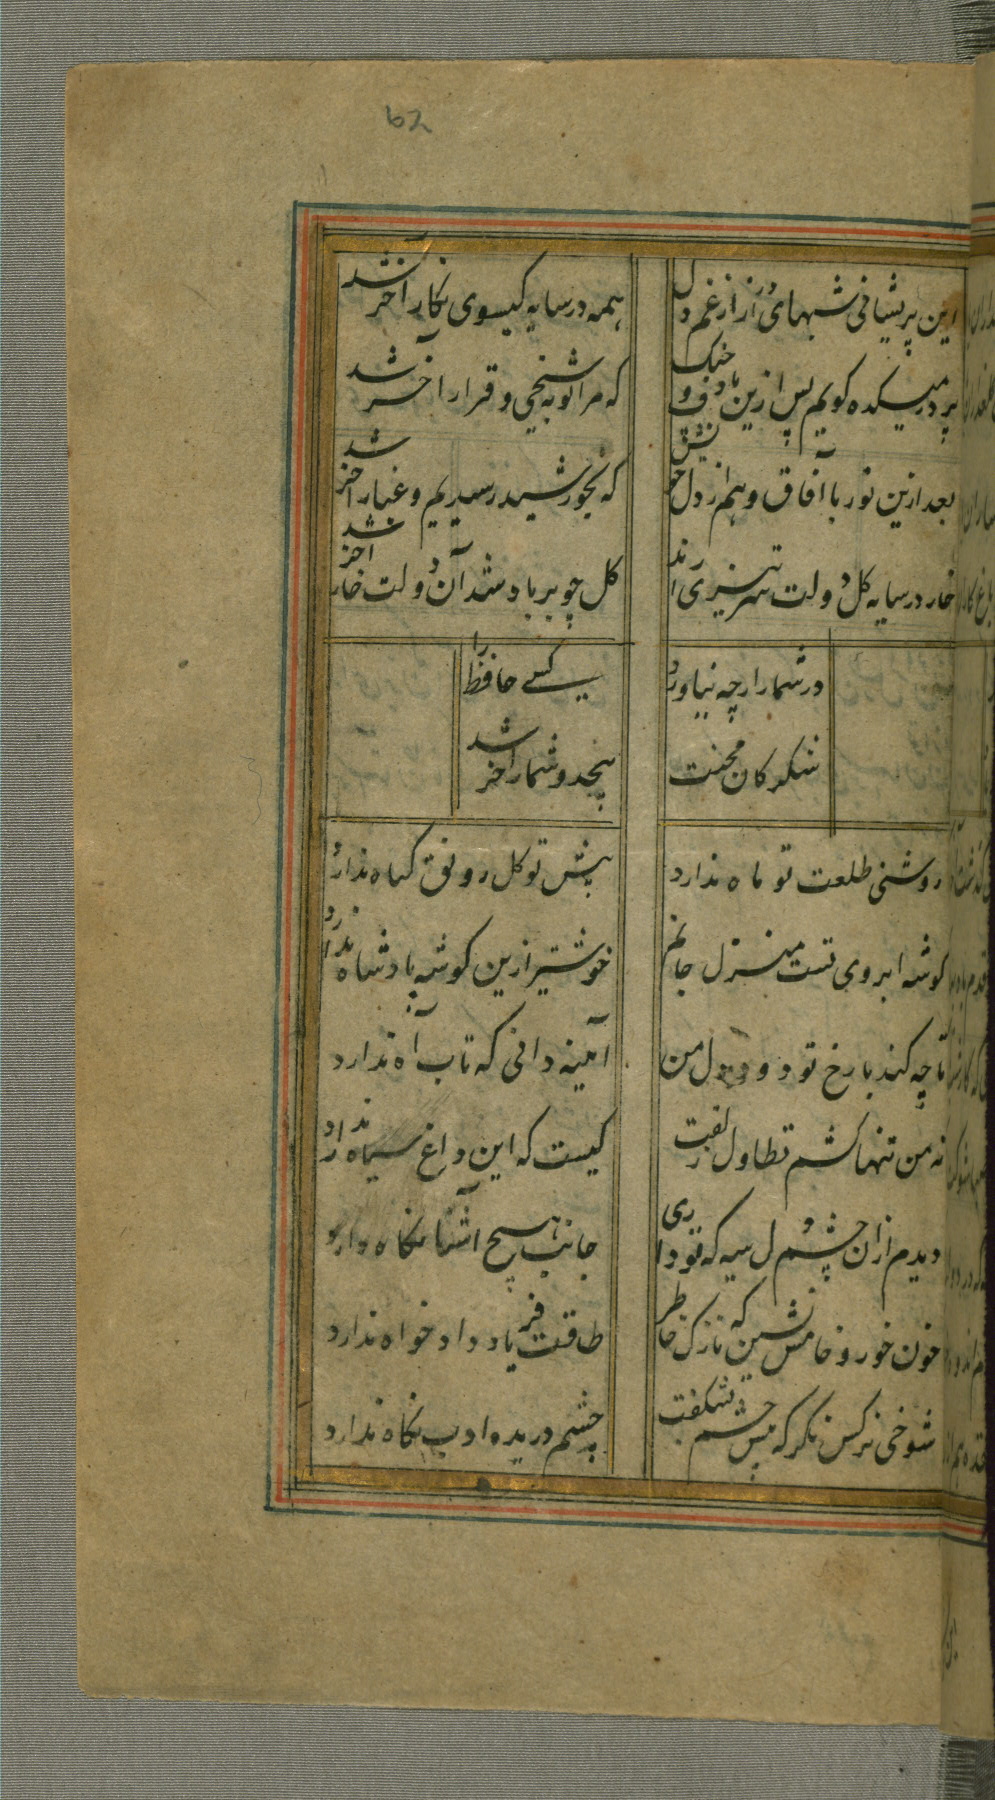 62
این پریشانی شبهای دراز از غم دل همه در سایه کیسوی نکار آخر شد
بر در میکده کویم پس ازین با دف و چنک که مرا توبه شیخی و قرار آخر شد
بعد ازین نور بآفاق دهم از دل خویش که بخورشید رسیدیم و غبار آخر شد
خار در سایه کل دولت تبریزی راند کل چو بر باد شد آن دولت خار آخر شد
در شمار ارچه نیاورد کسی حافظ را
شکر کان محنت بیحد و شمار آخر شد
روشنی طلعت تو ماه ندارد پیش تو کل رونق کیاه ندارد
کوشه ابروی تست منزل جانم خوشتر ازین کوشه پادشاه ندارد
تا چه کند با رخ تو دود دل من آینه دانی که تاب آه ندارد
نه من تنها کشم تطاول زلفت کیست که این داغ سیاه ندارد
دیدم از آن چشم دل سیه که تو داری جانب هیچ آشنا نکاه ندارد
خون خور و خامش نشین که نازک خاطر طاقت فریاد دادخواه ندارد
شوخی نرکس نکر که پیش چشم بشکفت چشم دریده ادب نکاه ندارد